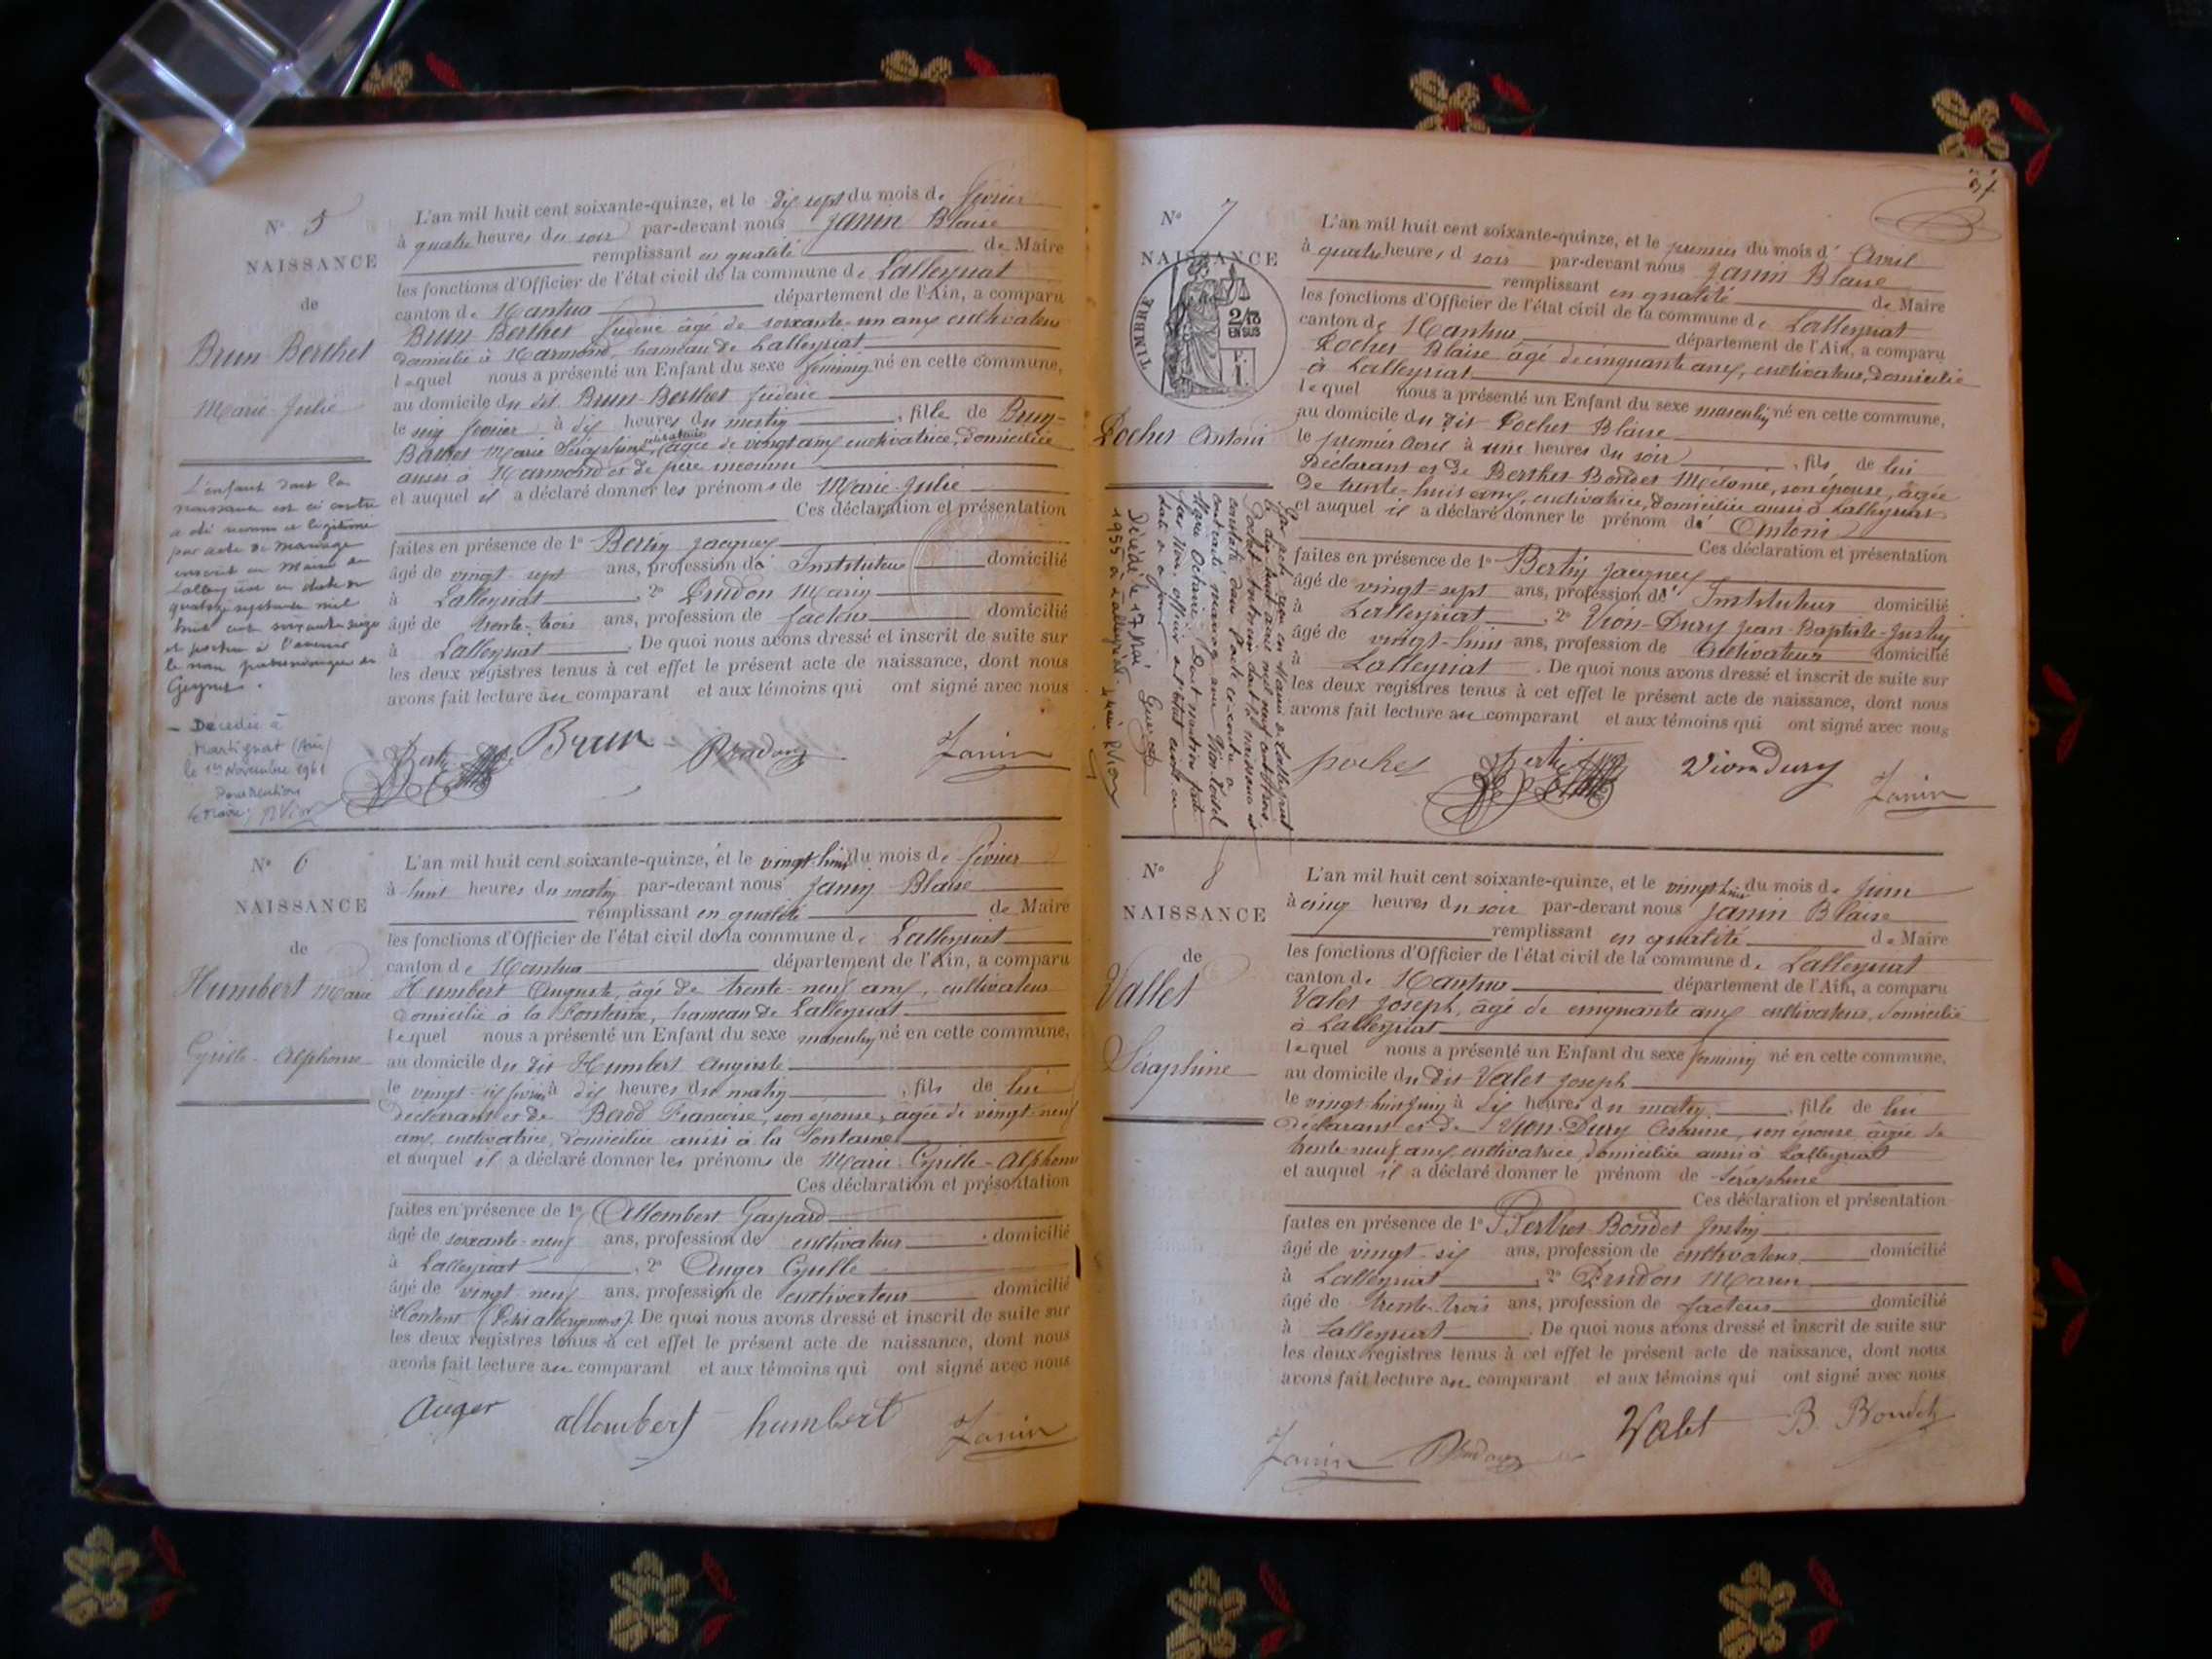 N° 5
NAISSANCE
de
Brun-Berthet
Marie-Julie
L'enfant dont la
naissance est ci contre
a été reconnu et légitimé
par acte de mariage
inscrit en Mairie de
en date du
quatre septembre mil
huit cent soixante seize
et portera à l'avenir
le nom patronimique de
— Décédée à
Martignat (Ain)
le 1er Novembre 1961
Pour mention
Le Maire: RVion
L'an mil huit cent soixante-quinze, et le dix sept du mois de février
à quatre heures du soir par-devant nous Janin Blaise
remplissant en qualité de Maire
les fonctions d'Officier de l'état civil de la commune de Lalleyriat
canton de Nantua département de l'Ain, a comparu
Brun Berthet Fréderic âgé de soixante-un ans cultivateur
domicilié à Marmond, hameau de Lalleyriat
lequel nous a présenté un Enfant du sexe féminin né en cette commune,
au domicile du dit Brun-Berthet fréderic
le seize février à dix heures du matin, fille de Brun-
Berthet Marie Séraphine, célibataire âgée de vingt ans cultivatrice, domiciliée
aussi à Marmond et de père inconnu
et auquel il a déclaré donner les prénoms de Marie-Julie
Ces déclaration et présentation
faites en présence de 1° Bertin Jacques
âgé de vingt-sept ans, profession de Instituteur domicilié
à Lalleyriat, 2° Prudon Marin
âgé de trente-trois ans, profession de facteur domicilié
à Lalleyriat. De quoi nous avons dressé et inscrit de suite sur
les deux registres tenus à cet effet le présent acte de naissance, dont nous
avons fait lecture au comparant et aux témoins qui ont signé avec nous
Berti Brun Prudon Janin
N° 6
NAISSANCE
de
Humbert Marie
Cyrille-Alphonse
L'an mil huit cent soixante-quinze, et le vingt-huit du mois de février
à huit heures du matin par-devant nous Janin Blaise
remplissant en qualité de Maire
les fonctions d'Officier de l'état civil de la commune de Lalleyriat
canton de Nantua département de l'Ain, a comparu
Humbert Auguste, âgé de trente-neuf ans, cultivateur
domicilié à la Fontaine, hameau de Lalleyriat
lequel nous a présenté un Enfant du sexe masculin né en cette commune,
au domicile du dit Humbert Auguste
le vingt-six février à dix heures du matin, fils de lui
déclarant et de Berod Françoise, son épouse, âgée de vingt-neuf
ans, cultivatrice, domiciliée aussi à la Fontaine
et auquel il a déclaré donner les prénoms de Marie-Cyrille-Alphonse
Ces déclaration et présentation
faites en présence de 1° Allombert Gaspard
âgé de soixante-neuf ans, profession de cultivateur domicilié
à Lalleyriat, 2° Auger Cyrille
âgé de vingt-neuf ans, profession de cultivateur domicilié
De quoi nous avons dressé et inscrit de suite sur
les deux registres tenus à cet effet le présent acte de naissance, dont nous
avons fait lecture au comparant et aux témoins qui ont signé avec nous
Auger allombert humbert Janin
37
N° 7
NAISSANCE
TIMBRE
2/10
EN SUS
F.
1.
Pochet Antoni
Décédé le 17 Mai
1955 à Lalleyriat. RVion
L'an mil huit cent soixante-quinze, et le premier du mois d' Avril
à quatre heures d soir par-devant nous Janin Blaise
remplissant en qualité de Maire
les fonctions d'Officier de l'état civil de la commune de Lalleyriat
canton de Nantua département de l'Ain, a comparu
Pochet Blaise âgé de cinquante ans, cultivateur, domicilié
à Lalleyriat
lequel nous a présenté un Enfant du sexe masculin né en cette commune,
au domicile du dit Pochet Blaise
le premier Avril à une heures du soir, fils de lui
déclarant et de Berthet Bondet Mélanie, son épouse, âgée
de trente-huit ans, cultivatrice, domiciliée aussi à Lalleyriat
et auquel il a déclaré donner le prénom d' Antoni
Ces déclaration et présentation
faites en présence de 1° Bertin Jacques
âgé de vingt-sept ans, profession d' Instituteur domicilié
à Lalleyriat, 2° Vion-Dury Jean-Baptiste-Justin
âgé de vingt-huit ans, profession de Cultivateur domicilié
à Lalleyriat. De quoi nous avons dressé et inscrit de suite sur
les deux registres tenus à cet effet le présent acte de naissance, dont nous
avons fait lecture au comparant et aux témoins qui ont signé avec nous
pochet Berti Viondury Janin
N° 8
NAISSANCE
de
Vallet
Séraphine
L'an mil huit cent soixante-quinze, et le vingt-huit du mois de Juin
à cinq heures du soir par-devant nous Janin Blaise
remplissant en qualité de Maire
les fonctions d'Officier de l'état civil de la commune de Lalleyriat
canton de Nantua département de l'Ain, a comparu
Valet Joseph, âgé de cinquante ans cultivateur, domicilié
à Lalleyriat
lequel nous a présenté un Enfant du sexe féminin né en cette commune,
au domicile du dit Valet Joseph
le vingt-huit Juin à dix heures du matin, fille de lui
déclarant et de Vion-Dury son épouse âgée de
trente-neuf ans, cultivatrice, domiciliée aussi à Lalleyriat
et auquel il a déclaré donner le prénom de Séraphine
Ces déclaration et présentation
faites en présence de 1° Berthet-Bondet Justin
âgé de vingt-six ans, profession de cultivateur domicilié
à Lalleyriat, 2° Prudon Marin
âgé de trente-trois ans, profession de facteur domicilié
à Lalleyriat. De quoi nous avons dressé et inscrit de suite sur
les deux registres tenus à cet effet le présent acte de naissance, dont nous
avons fait lecture au comparant et aux témoins qui ont signé avec nous
Janin Prudon Valet B. Bondet